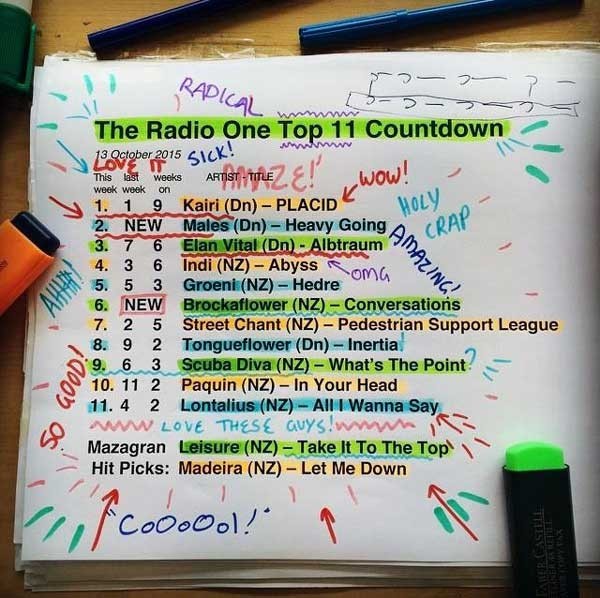 RADICAL
The Radio One Top 11 Countdown
13 October 2015 SICK!
LOVE IT AMAZE! WOW!
This last weeks ARTIST - TITLE
week week on
1. 1 9 Kairi (Dn) – PLACID
HOLY CRAP
2. NEW Males (Dn) – Heavy Going
AMAZING!
3. 7 6 Elan Vital (Dn) - Albtraum
4. 3 6 Indi (NZ) – Abyss OMG
AHHH!
5. 5 3 Groeni (NZ) – Hedre
6. NEW Brockaflower (NZ) – Conversations
7. 2 5 Street Chant (NZ) – Pedestrian Support League
8. 9 2 Tongueflower (Dn) – Inertia
9. 6 3 Scuba Diva (NZ) – What's The Point?
SO GOOD!
10. 11 2 Paquin (NZ) – In Your Head
11. 4 2 Lontalius (NZ) – All I Wanna Say
LOVE THESE GUYS!
Mazagran Leisure (NZ) – Take It To The Top
Hit Picks: Madeira (NZ) – Let Me Down
"COOoOol!"
FABER CASTELL